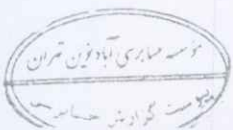 مؤسسه حسابرسی آباد نوین تهران
پیوست گزارش حسابرسی